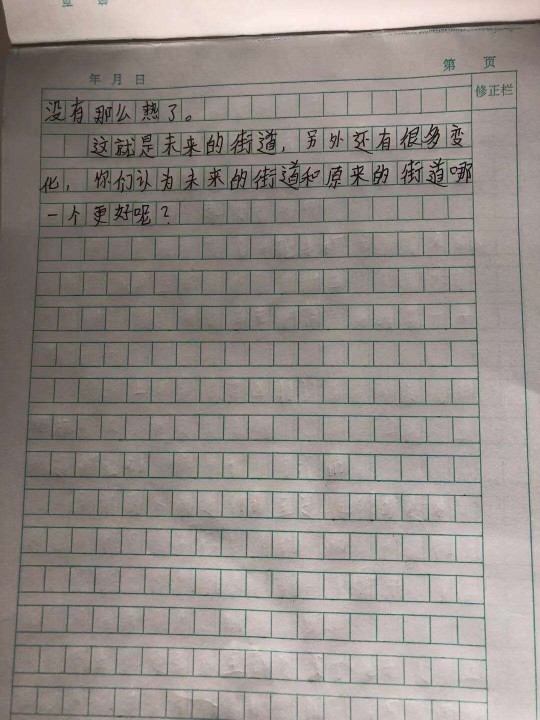 第 页
年 月 日
修正栏
没有那么热了。
这就是未来的街道，另外还有很多变
化，你们认为未来的街道和原来的街道哪
一个更好呢？